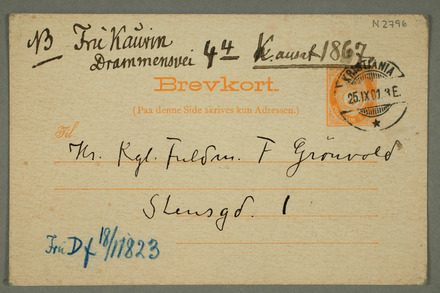 N 2796
NB Fru Kaurin
Drammensvei 44 K. ausat 1867
Brevkort.
(Paa denne Side skrives kun Adressen.)
KRISTIANIA
25.IX 01. 8 E.
Til
Hr. Kgl. Fuldm. F Grönvold
Stensgd. 1
Fru D f 18/11 1823